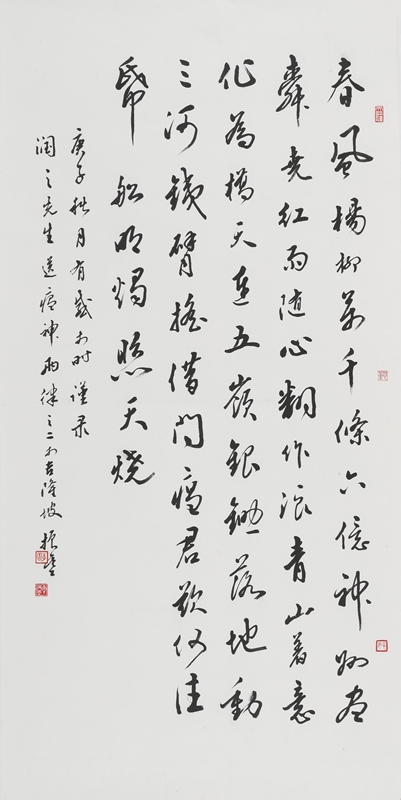 春風楊柳萬千條六億神州盡
舜堯紅雨随心翻作浪青山着意
化為橋天連五嶺銀鋤落地動
三河鐵臂搖借問瘟君欲何往
帋船明燭照天燒
庚子桃月有感於时谨录
润之先生送瘟神兩律之二於吉隆坡